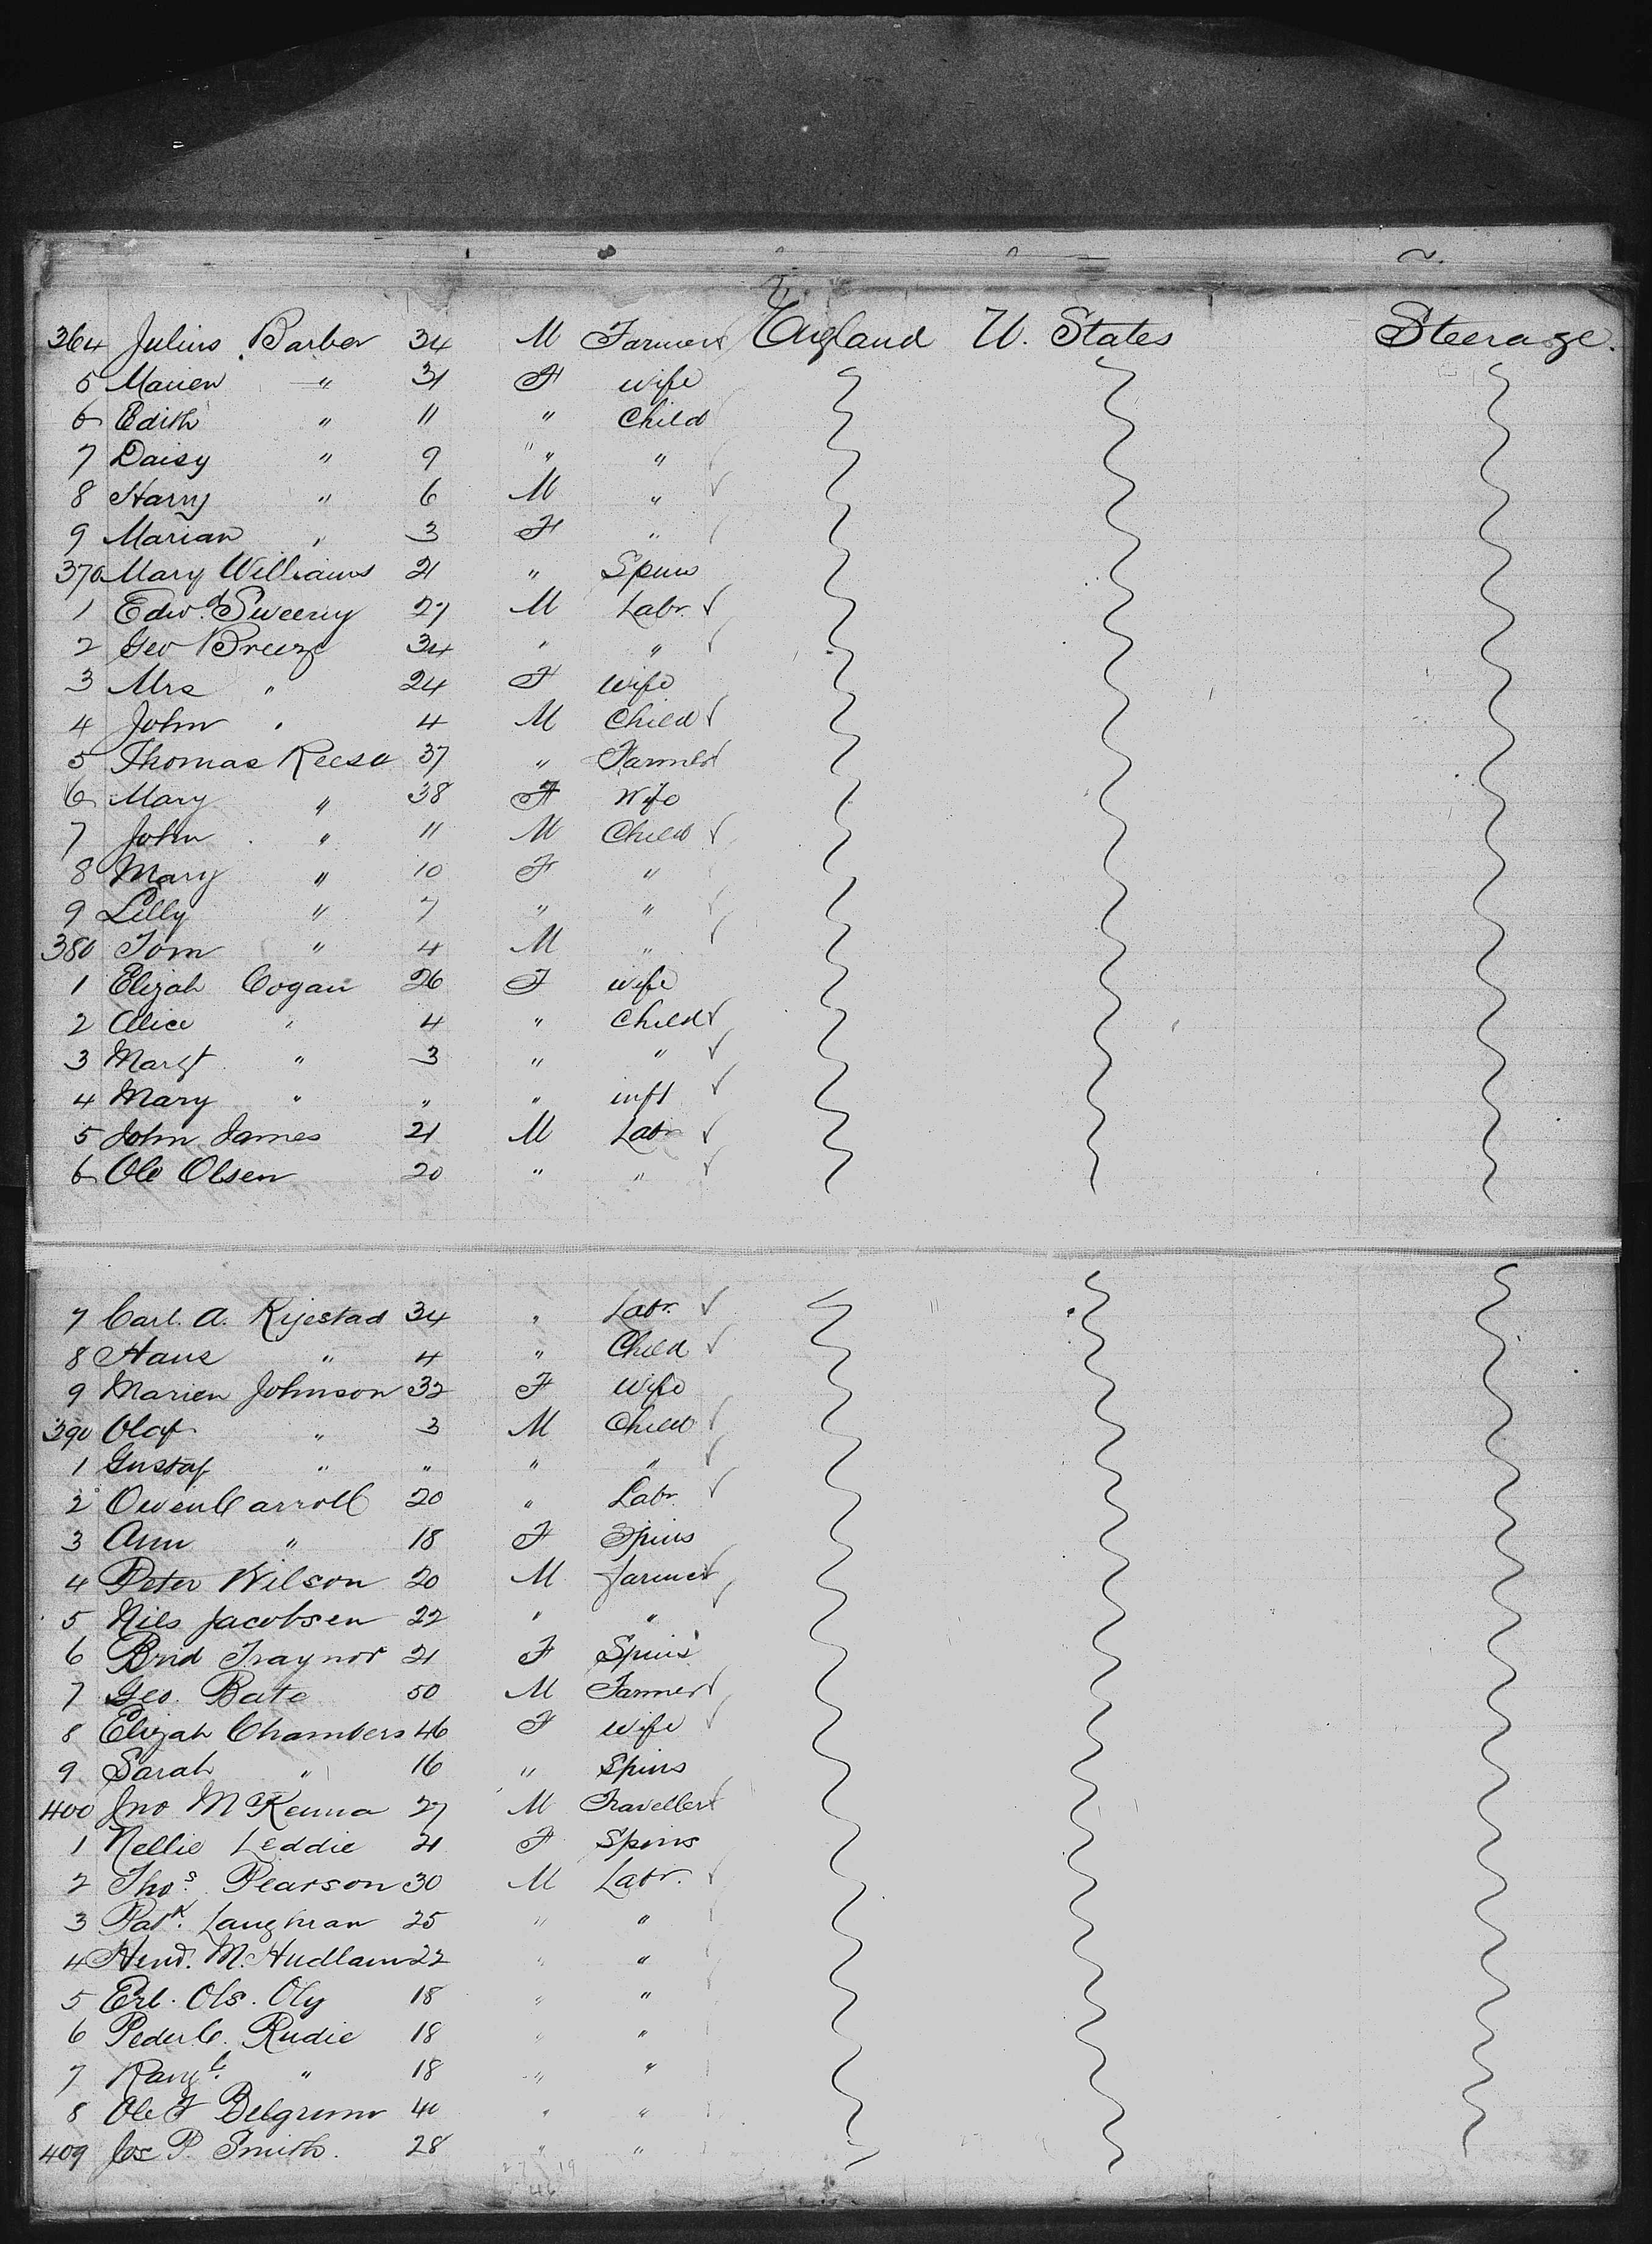 364 Julius Barber 34 M Farmer England U. States Steerage.
5 Marien " 31 F Wife
6 Edith " 11 " Child
7 Daisy " 9 " "
8 Harry " 6 M "
9 Marian " 3 F "
370 Mary Williams 21 " Spins
1 Edwd. Sweeny 27 M Labr.
2 Geo Breeze 34 " "
3 Mrs " 24 F Wife
4 John " 4 M Child
5 Thomas Reese 37 " Farmer
6 Mary " 38 F Wife
7 John " 11 M Child
8 Mary " 10 F "
9 Lilly " 7 " "
380 Tom " 4 M "
1 Elizah Cogan 26 F Wife
2 Alice " 4 " Child
3 Margt " 3 " "
4 Mary " " " inft
5 John James 21 M Labr
6 Ole Olsen 20 " "
7 Carl. A. Kijestad 34 " Labr.
8 Hans " 4 " Child
9 Marien Johnson 32 F Wife
390 Olaf " 3 M Child
1 Gustaf " " " "
2 Owen Carroll 20 " Labr.
3 Ann " 18 F Spins
4 Peter Wilson 20 M farmer
5 Nils Jacobsen 22 " "
6 Brid Traynor 21 F Spins
7 Geo. Bate 50 M Farmer
8 Elizah Chambers 46 F Wife
9 Sarah " 16 " Spins
400 Jno McKenna 27 M Traveller
1 Nellie Leddie 21 F Spins
2 Thos. Pearson 30 M Labr.
3 Patk. Laughran 25 " "
4 Hend. M. Hudlam 22 " "
5 Erl. Ols. Oly 18 " "
6 Peder C. Rudie 18 " "
7 " 18 " "
8 Ole F Belgrum 40 " "
409 Jos P. Smith. 28 " "
27 19
46